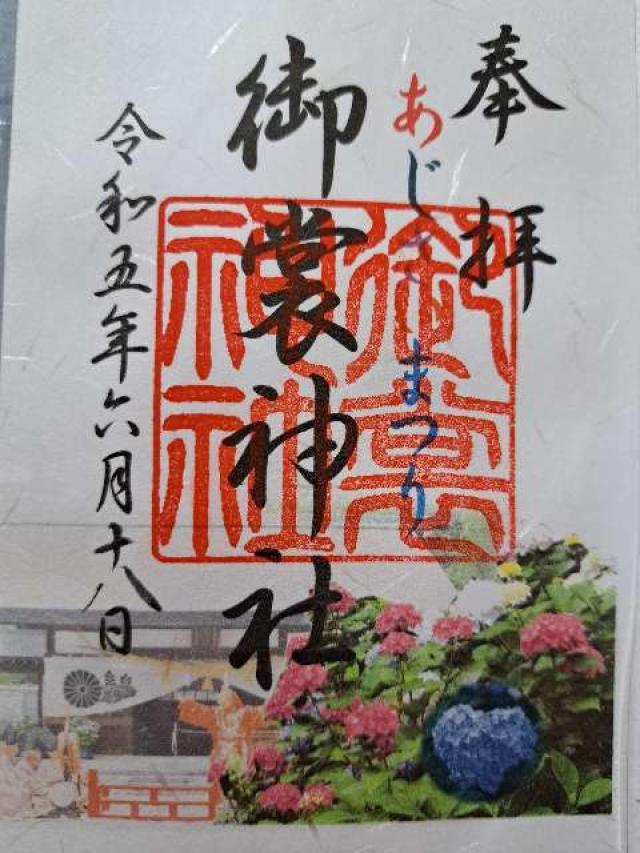 奉拝
あじさいまつり
御裳神社
御裳神社
令和五年六月十八日